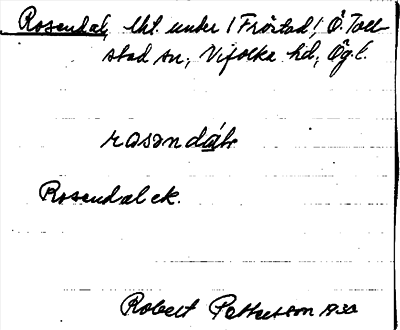 Rosendal, lht. under (Frörstad), Ö. Toll-
stad sn, Vifolka hd, Ög. l.
rosəndál
Rosendal ek.
Robert Pettersson 1930